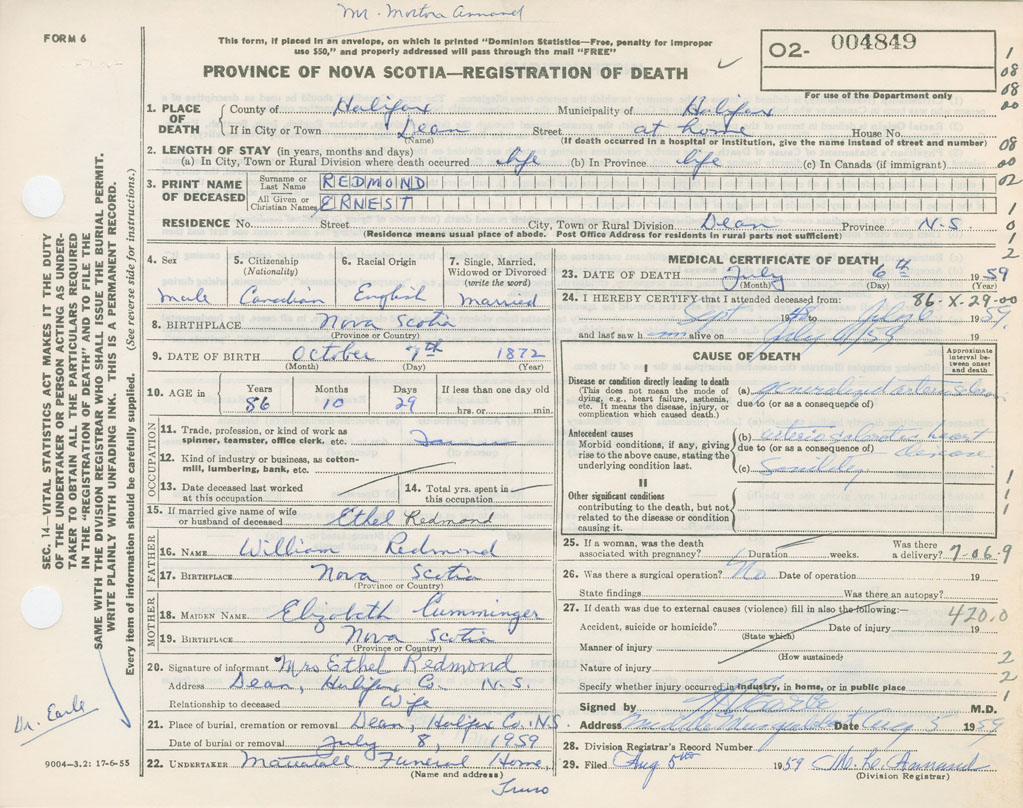 Mr. Mortora Annand
FORM 6
This form, if placed in an envelope, on which is printed "Dominion Statistics—Free, penalty for improper
use $50," and properly addressed will pass through the mail "FREE"
PROVINCE OF NOVA SCOTIA—REGISTRATION OF DEATH
O2- 004849
For use of the Department only
1. PLACE OF DEATH { County of Halifax Municipality of Halifax
If in City or Town Dean Street at home House No.
(Name) (If death occurred in a hospital or institution, give the name instead of street and number)
2. LENGTH OF STAY (in years, months and days)
(a) In City, Town or Rural Division where death occurred life (b) In Province life (c) In Canada (if immigrant)
3. PRINT NAME OF DECEASED
Surname or Last Name REDMOND
All Given or Christian Names ERNEST
RESIDENCE No. Street City, Town or Rural Division Dean Province N.S
(Residence means usual place of abode. Post Office Address for residents in rural parts not sufficient)
4. Sex Male
5. Citizenship (Nationality) Canadian
6. Racial Origin English
7. Single, Married, Widowed or Divorced (write the word) Married
8. BIRTHPLACE Nova Scotia
(Province or Country)
9. DATE OF BIRTH October 7th 1872
(Month) (Day) (Year)
10. AGE in Years 86 Months 10 Days 29 If less than one day old hrs. or min.
OCCUPATION
11. Trade, profession, or kind of work as
spinner, teamster, office clerk, etc.
12. Kind of industry or business, as cotton-
mill, lumbering, bank, etc.
13. Date deceased last worked
at this occupation
14. Total yrs. spent in
this occupation
15. If married give name of wife
or husband of deceased Ethel Redmond
FATHER
16. NAME William Redmond
17. BIRTHPLACE Nova Scotia
(Province or Country)
MOTHER
18. MAIDEN NAME Elizabeth Cumminger
19. BIRTHPLACE Nova Scotia
(Province or Country)
20. Signature of informant Mrs Ethel Redmond
Address Dean, Halifax Co. N.S.
Relationship to deceased Wife
21. Place of burial, cremation or removal Dean, Halifax Co. N.S
Date of burial or removal July 8, 1959
22. UNDERTAKER Mattatall Funeral Home,
(Name and address)
Truro
MEDICAL CERTIFICATE OF DEATH
23. DATE OF DEATH July 6th 1959
(Month) (Day) (Year)
86-X-29-00
24. I HEREBY CERTIFY that I attended deceased from:
Sept 19 to July 6 1959
and last saw h im alive on July 19
CAUSE OF DEATH
Approximate interval between onset and death
I
Disease or condition directly leading to death
(This does not mean the mode of
dying, e.g., heart failure, asthenia,
etc. It means the disease, injury, or
complication which caused death.)
(a) generalized
due to (or as a consequence of)
Antecedent causes
Morbid conditions, if any, giving
rise to the above cause, stating the
underlying condition last.
(b) heart disease
due to (or as a consequence of)
(c) Senility
II
Other significant conditions
contributing to the death, but not
related to the disease or condition
causing it.
25. If a woman, was the death
associated with pregnancy? Duration weeks. Was there
a delivery? 7-06-9
26. Was there a surgical operation? No Date of operation 19
State findings Was there an autopsy?
27. If death was due to external causes (violence) fill in also the following:—
420.0
Accident, suicide or homicide? Date of injury 19
(State which)
Manner of injury
(How sustained)
Nature of injury
Specify whether injury occurred in industry, in home, or in public place
Signed by M.D.
Address Middle Musquodoboit Date Aug 5 1959
28. Division Registrar's Record Number
29. Filed Aug 5th 1959 M. D. Annand
(Division Registrar)
SEC. 14—VITAL STATISTICS ACT MAKES IT THE DUTY
OF THE UNDERTAKER OR PERSON ACTING AS UNDER-
TAKER TO OBTAIN ALL THE PARTICULARS REQUIRED
IN THE "REGISTRATION OF DEATH" AND TO FILE THE
SAME WITH THE DIVISION REGISTRAR WHO SHALL ISSUE THE BURIAL PERMIT.
WRITE PLAINLY WITH UNFADING INK. THIS IS A PERMANENT RECORD.
Every item of information should be carefully supplied. (See reverse side for instructions.)
Dr. Earle
9004—3.2: 17-6-55
1
08
08
00
08
00
02
1
0
1
2
1
1
1
2
2
1